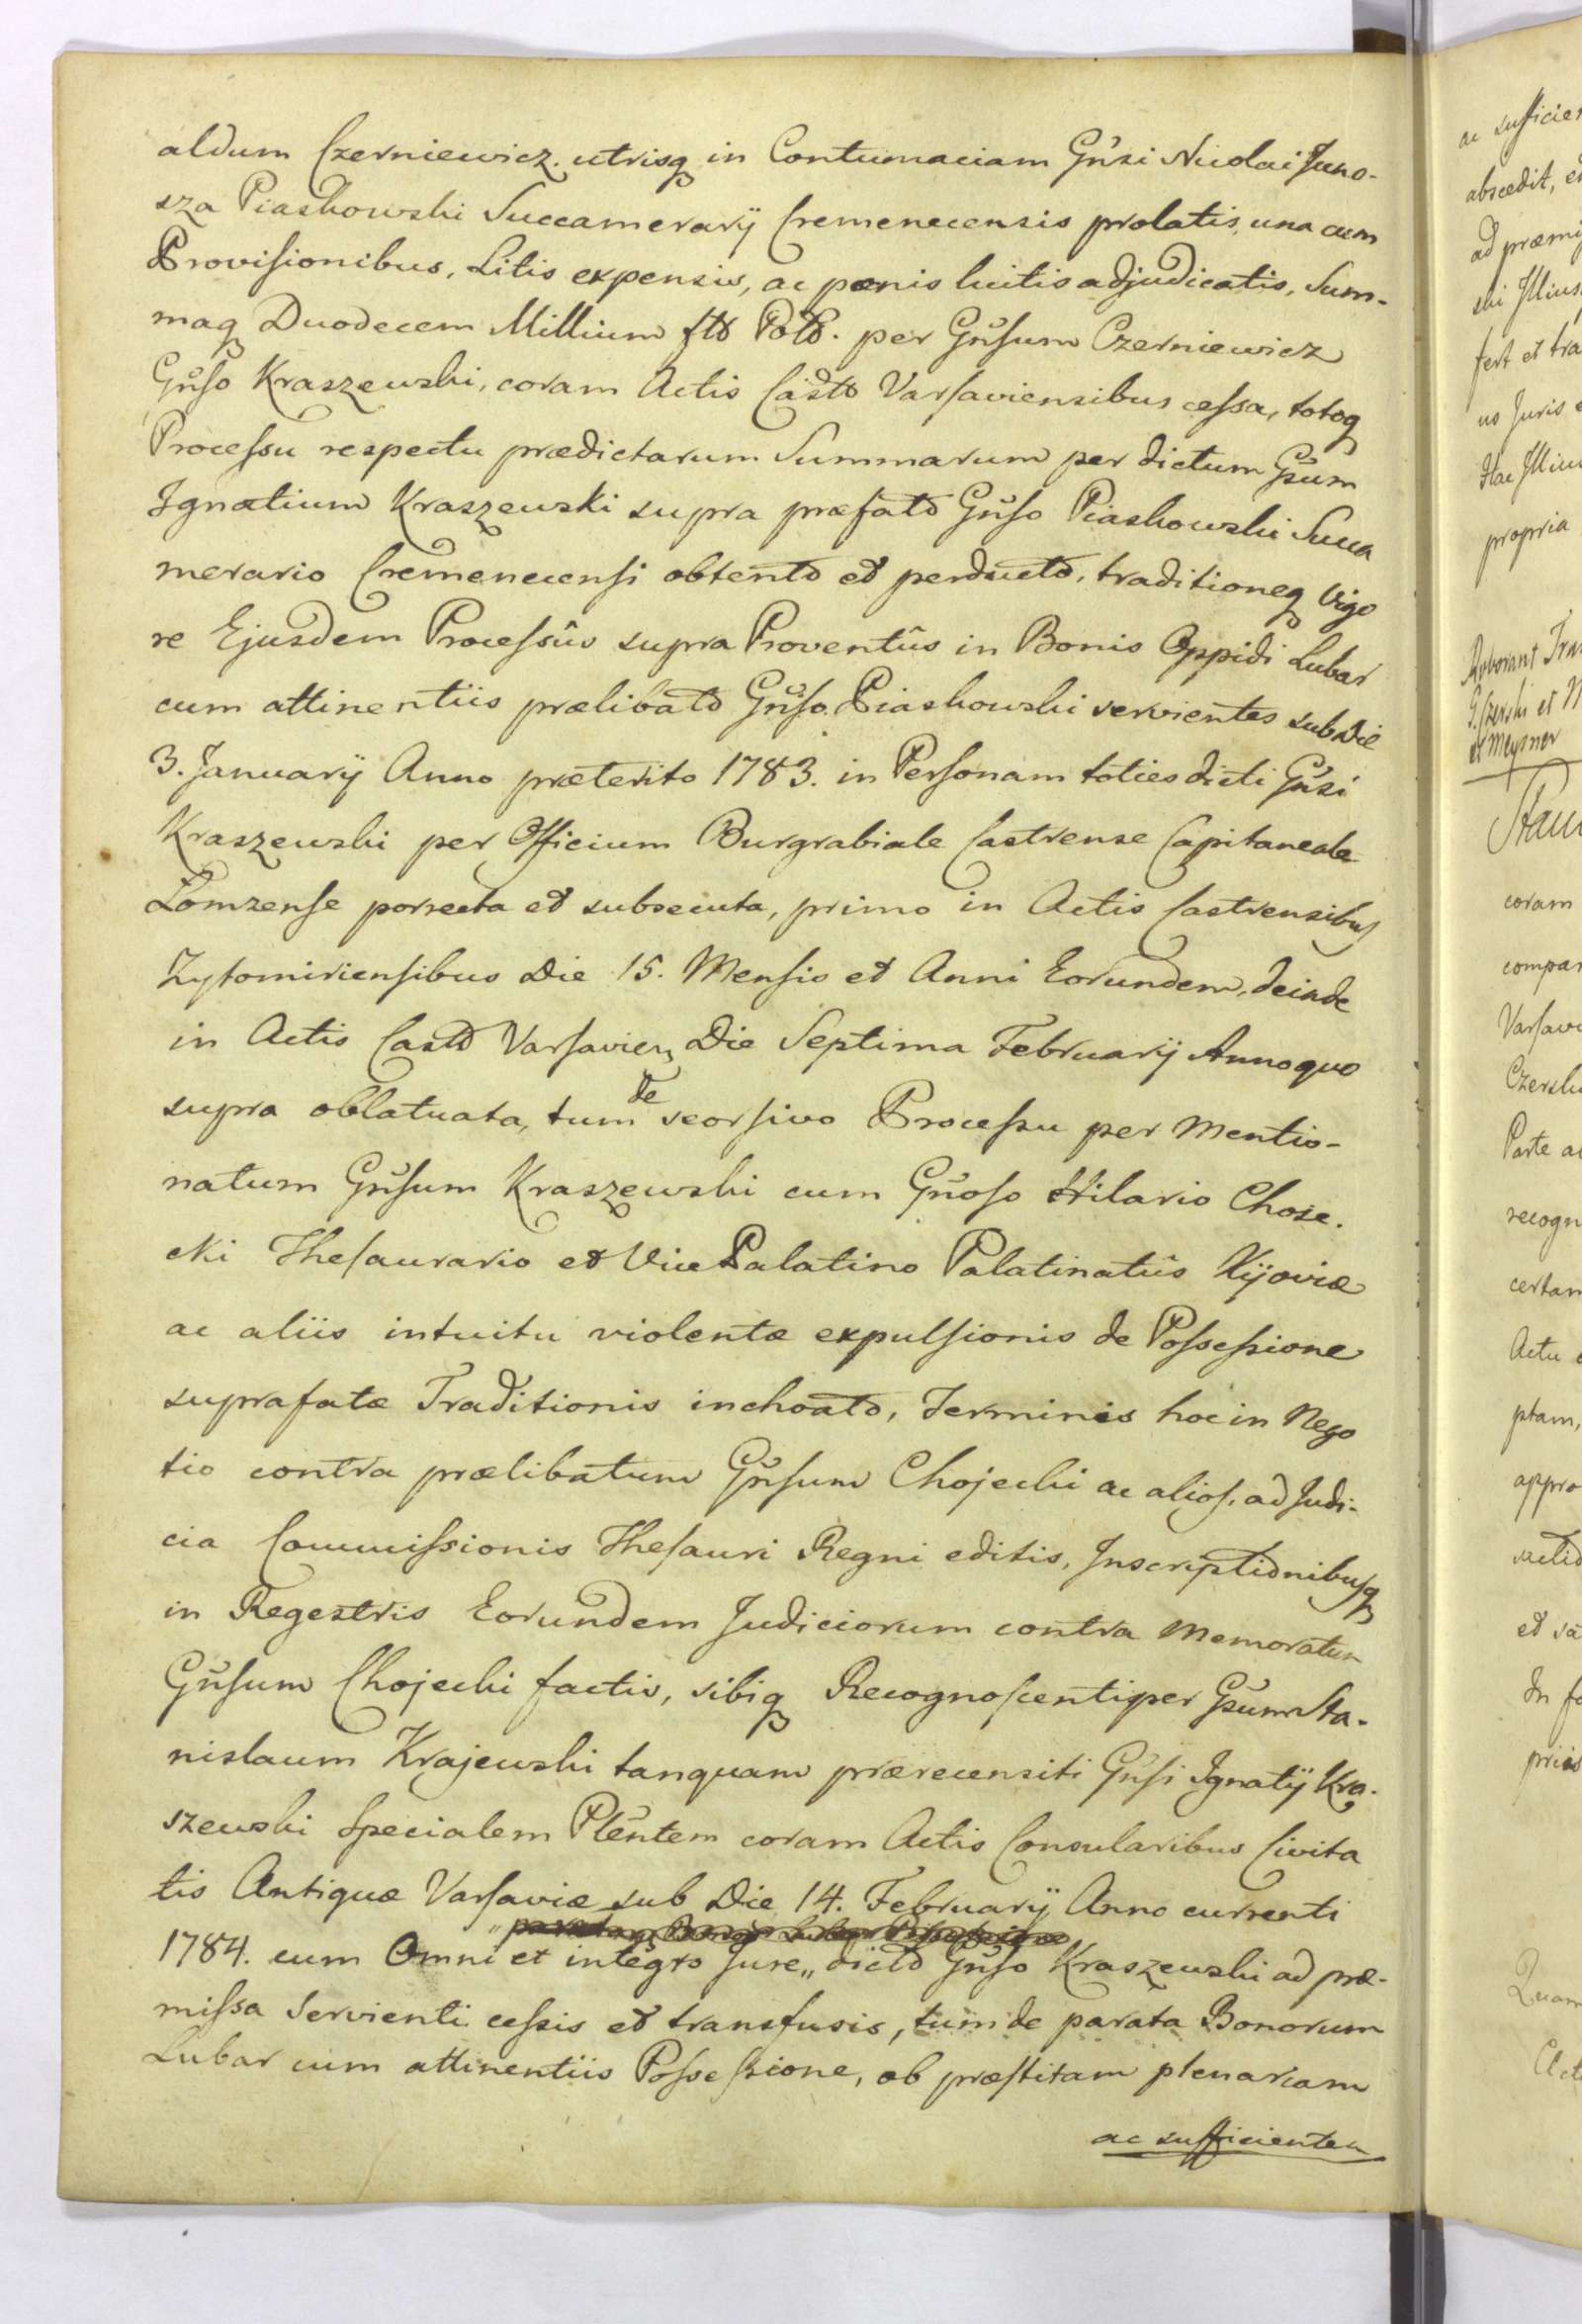 aldum Czerniewicz. utrisq in Contumaciam Gńsi Nicolai Juno-
sza Piaskowski Succamerarÿ Cremenecensis prolatis, una cum
Provisionibus, Litis expensis, ac pœnis luitis adjudicatis, Sum-
maq Duodecem Millium flo Polo. per Gńsum Czerniewicz
Gńso Kraszewski, coram Actis Casto Varsaviensibus cessa, totoq
Processu respectu prædictarum Summarum per dictum Gsum
Ignatium Kraszewski supra præfato Gńso Piaskowski Succa
merario Cremenecensi obtento et perducto, traditioneq Vigo
re Ejusdem Processûs supra Proventûs in Bonis Oppidi Lubar
cum attinentiis prælibato Gńso Piaskowski servientes sub Die
3. Januarÿ Anno præterito 1783. in Personam toties dicti Gńsi
Kraszewski per Officium Burgrabiale Castrense Capitaneale
Lomzense porrecta et subsecuta, primo in Actis Castrensibus
Zytomiriensibus Die 15. Mensis et Anni Eorundem, deinde
in Actis Casto Varsavien, Die Septima Februarÿ Anno quo
supra oblatuata, tum de seorsivo Processu per Mentio-
natum Gńsum Kraszewski cum Gńoso Hilario Choje-
cki Thesaurario et Vice Palatino Palatinatûs Kijoviæ
ac aliis intuitu violentæ expulsionis de Possessione
suprafatæ Traditionis inchoato, Terminis hoc in Nego
tio contra prælibatum Gńsum Chojecki ac alios, ad Judi-
cia Commissionis Thesauri Regni editis, Inscriptionibusq
in Regestris Eorundem Judiciorum contra Memoratum
Gńsum Chojecki factis, sibiq Recognoscenti per Gsum Sta-
nislaum Krajewski tanquam prærecensiti Gńsi Ignatÿ Kra-
szewski Specialem Plentem coram Actis Consularibus Civita
tis Antiquæ Varsaviæ sub Die 14. Februarÿ Anno currenti
1784. cum Omni et integro Jure,, dicto Gńso Kraszewski ad præ-
missa Servienti cessis et transfusis, tum de parata Bonorum
Lubar cum attinentiis Possessione, ob præstitam plenariam
ac sufficientem
ac sufficien
abscedit,
ad præmi
ski Illius
fert et tra
us Juris
Hac Illius
propria
Roborant Tran
G. Czerski et M
et Meysner
coram
compar
Varsavi
Czersk
Parte a
recogn
certam
Actu
ptam,
appro
et sa
In fo
Quam